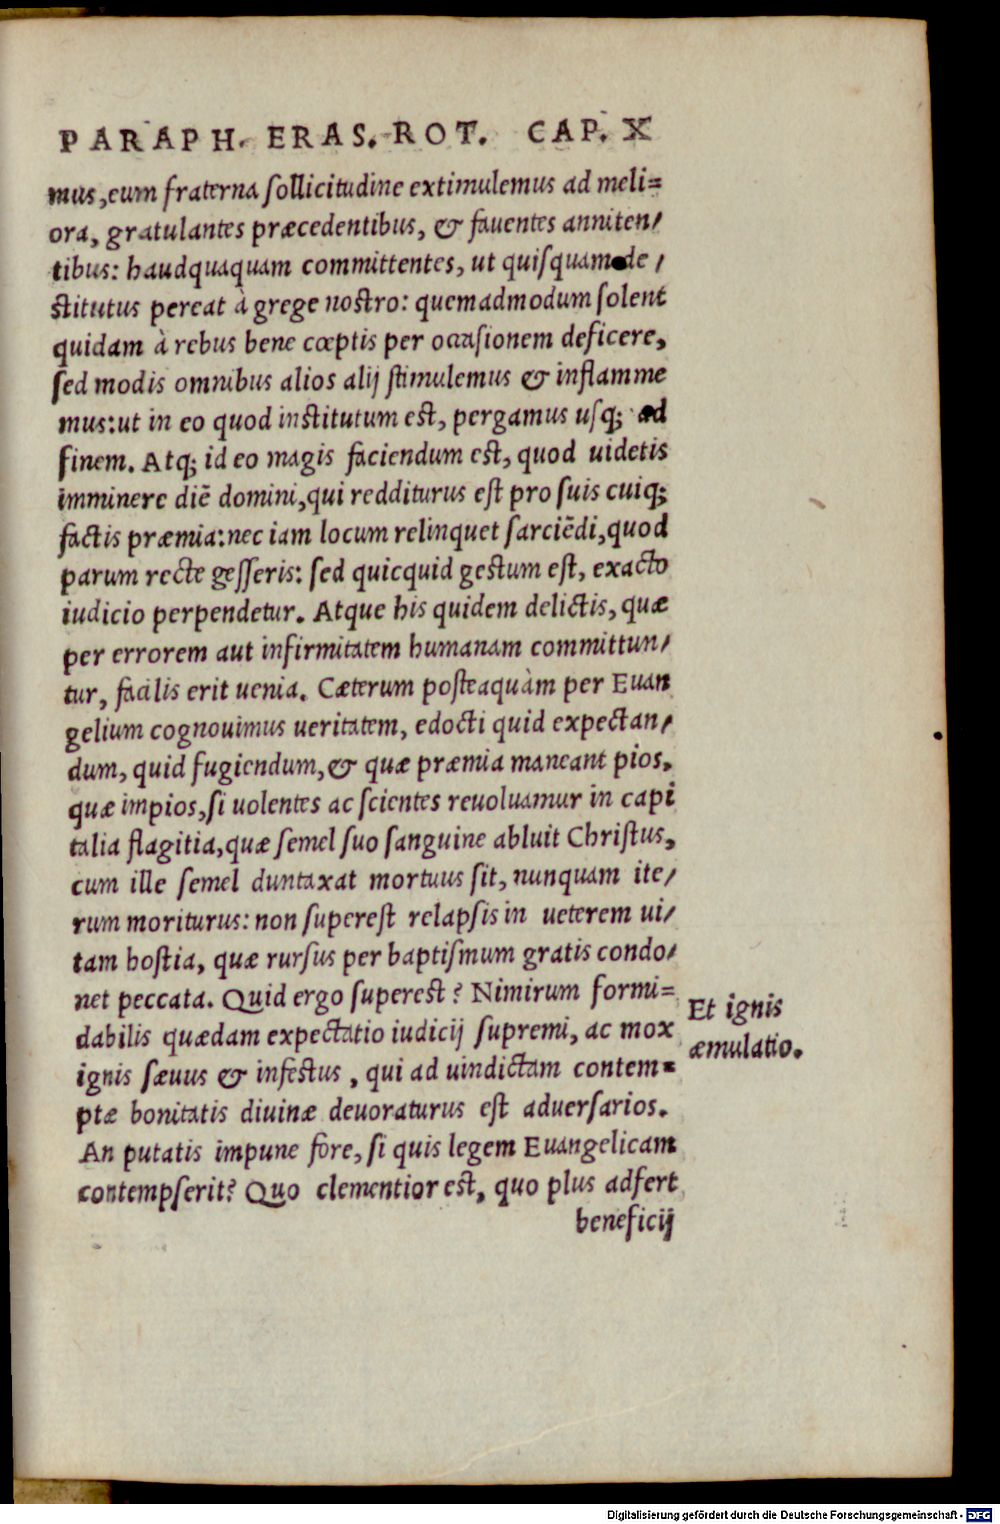 PARAPH. ERAS. ROT. CAP. X
mus, eum fraterna sollicitudine extimulemus ad meli=
ora, gratulantes præcedentibus, & fauentes anniten/
tibus: haudquaquam committentes, ut quisquam de /
stitutus pereat à grege nostro: quemadmodum solent
quidam à rebus bene cœptis per occasionem deficere,
sed modis omnibus alios alij stimulemus & inflamme
mus: ut in eo quod institutum est, pergamus usq; ad
finem. Atq; id eo magis faciendum est, quod uidetis
imminere diē domini, qui redditurus est pro suis cuiq;
factis præmia: nec iam locum relinquet sarciēdi, quod
parum recte gesseris: sed quicquid gestum est, exacto
iudicio perpendetur. Atque his quidem delictis, quæ
per errorem aut infirmitatem humanam committun/
tur, facilis erit uenia. Cæterum posteaquàm per Euan
gelium cognouimus ueritatem, edocti quid expectan/
dum, quid fugiendum, & quæ præmia maneant pios,
quæ impios, si uolentes ac scientes reuoluamur in capi
talia flagitia, quæ semel suo sanguine abluit Christus,
cum ille semel duntaxat mortuus sit, nunquam ite/
rum moriturus: non superest relapsis in ueterem ui/
tam hostia, quæ rursus per baptismum gratis condo/
net peccata. Quid ergo superest? Nimirum formi=
dabilis quædam expectatio iudicij supremi, ac mox
ignis sæuus & infestus, qui ad uindictam contem=
ptæ bonitatis diuinæ deuoraturus est aduersarios.
An putatis impune fore, si quis legem Euangelicam
contempserit? Quo clementior est, quo plus adfert
beneficij
Et ignis
æmulatio.
Digitalisierung gefördert durch die Deutsche Forschungsgemeinschaft - DFG